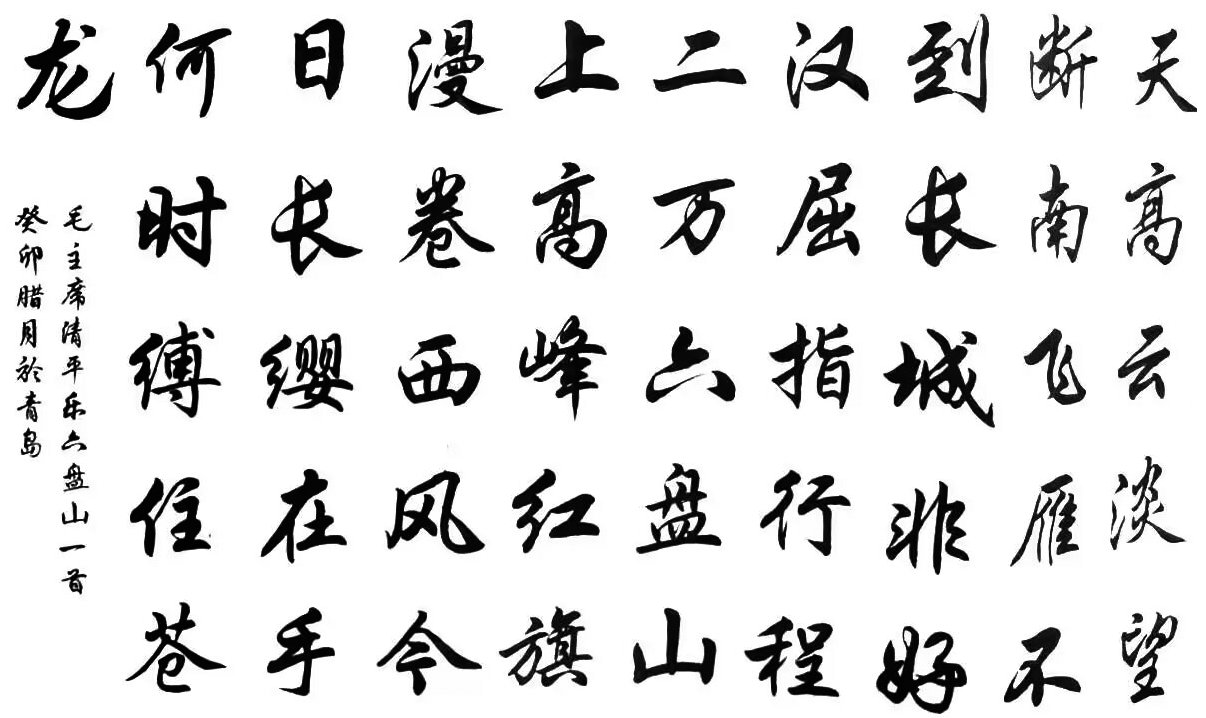 天高云淡望
断南飞雁不
到长城非好
汉屈指行程
二万六盘山
上高峰红旗
漫卷西风今
日长缨在手
何时缚住苍
龙
毛主席清平乐六盘山一首
癸卯腊月於青岛